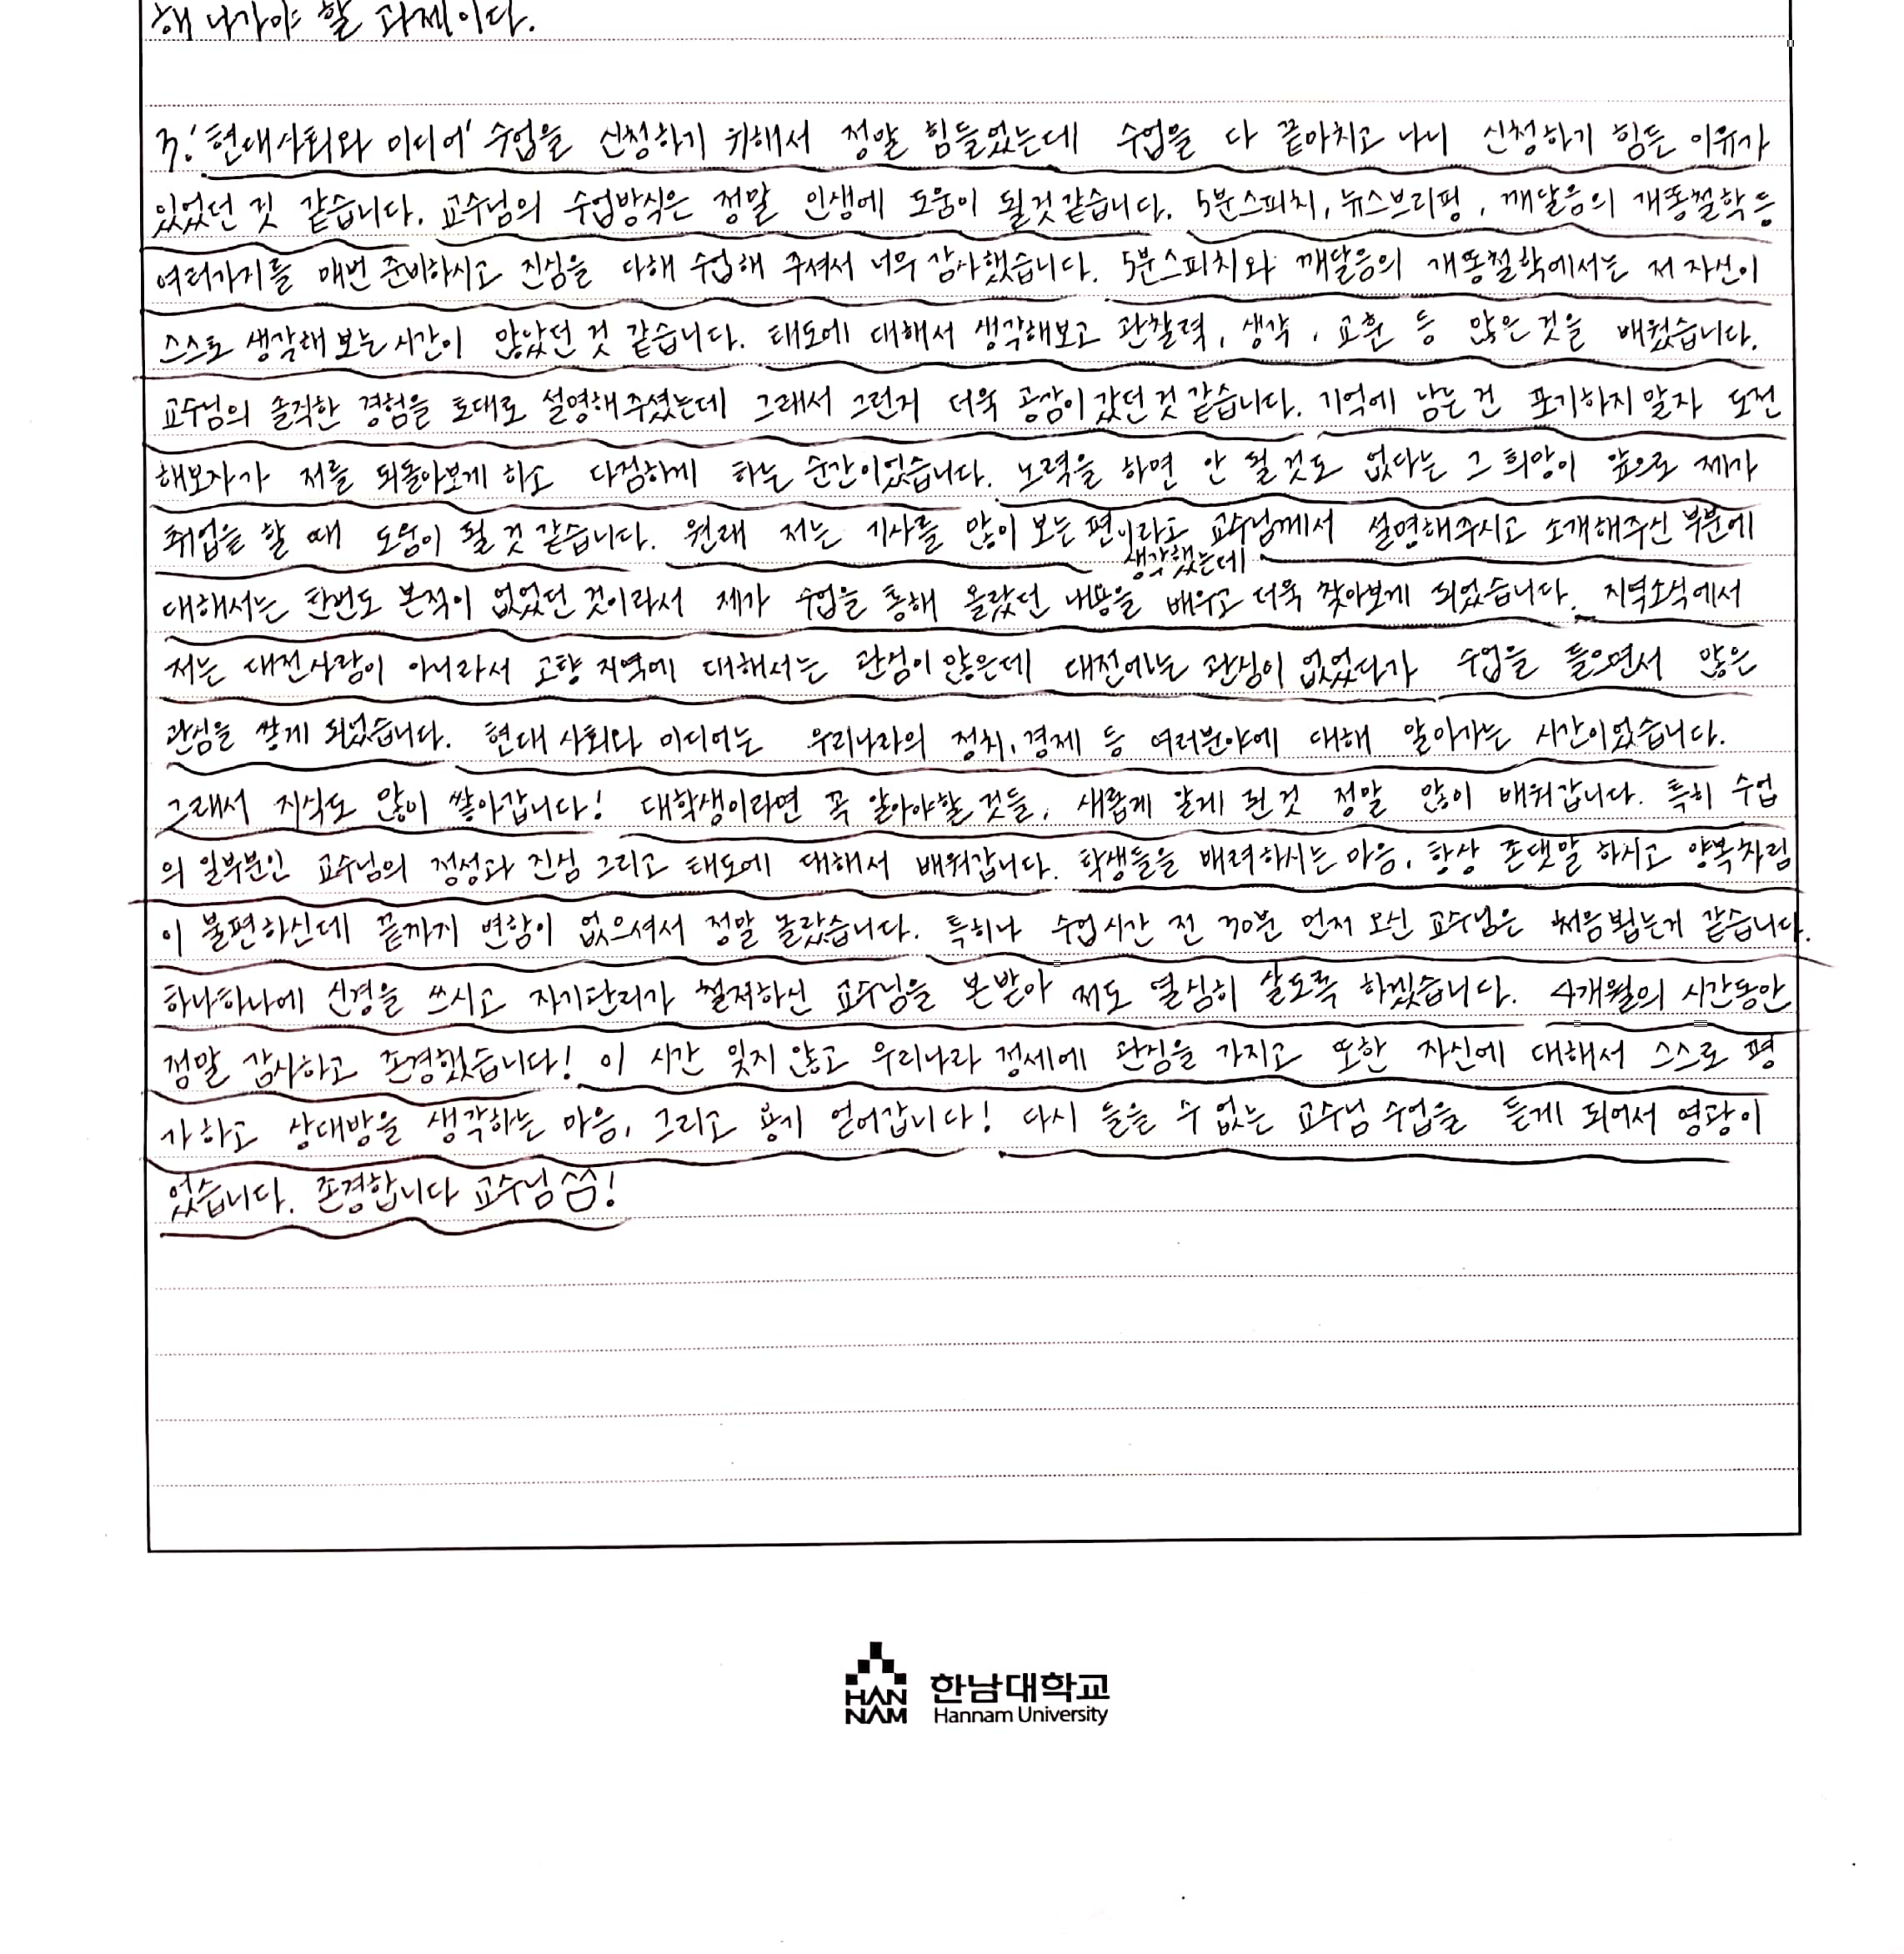 해 나가야 할 과제이다.
3. '현대사회와 미디어' 수업을 신청하기 위해서 정말 힘들었는데 수업을 다 끝마치고 나니 신청하기 힘든 이유가
있었던 것 같습니다. 교수님의 수업방식은 정말 인생에 도움이 될것같습니다. 5분스피치, 뉴스브리핑, 깨달음의 개똥철학 등
여러가지를 매번 준비하시고 진심을 다해 수업해 주셔서 너무 감사했습니다. 5분스피치와 깨달음의 개똥철학에서는 저 자신이
스스로 생각해 보는 시간이 많았던 것 같습니다. 태도에 대해서 생각해보고 관찰력, 생각, 교훈 등 많은 것을 배웠습니다.
교수님의 솔직한 경험을 토대로 설명해주셨는데 그래서 그런지 더욱 공감이 갔던 것 같습니다. 기억에 남는 건 포기하지 말자 도전
해보자가 저를 되돌아보게 하고 다짐하게 하는 순간이었습니다. 노력을 하면 안 될 것도 없다는 그 희망이 앞으로 제가
취업을 할 때 도움이 될 것 같습니다. 원래 저는 기사를 많이 보는 편이라고 교수님께서 설명해주시고 소개해주신 부분에
생각했는데
대해서는 한번도 본적이 없었던 것이라서 제가 수업을 통해 몰랐던 내용을 배우고 더욱 찾아보게 되었습니다. 지역소식에서
저는 대전사람이 아니라서 고향 지역에 대해서는 관심이 많은데 대전에는 관심이 없었다가 수업을 들으면서 많은
관심을 쌓게 되었습니다. 현대 사회와 미디어는 우리나라의 정치, 경제 등 여러분야에 대해 알아가는 시간이었습니다.
그래서 지식도 많이 쌓아갑니다! 대학생이라면 꼭 알아야할 것들, 새롭게 알게 된 것 정말 많이 배워갑니다. 특히 수업
의 일부분인 교수님의 정성과 진심 그리고 태도에 대해서 배워갑니다. 학생들을 배려하시는 마음, 항상 존댓말 하시고 양복차림
이 불편하신데 끝까지 변함이 없으셔서 정말 놀랐습니다. 특히나 수업시간 전 30분 먼저 오신 교수님은 처음뵙는거 같습니다.
하나하나에 신경을 쓰시고 자기관리가 철저하신 교수님을 본받아 저도 열심히 살도록 하겠습니다. 4개월의 시간동안
정말 감사하고 존경했습니다! 이 시간 잊지 않고 우리나라 정세에 관심을 가지고 또한 자신에 대해서 스스로 평
가하고 상대방을 생각하는 마음, 그리고 용기 얻어갑니다! 다시 들을 수 없는 교수님 수업을 듣게 되어서 영광이
었습니다. 존경합니다 교수님 쏨!
HAN
NAM
한남대학교
Hannam University